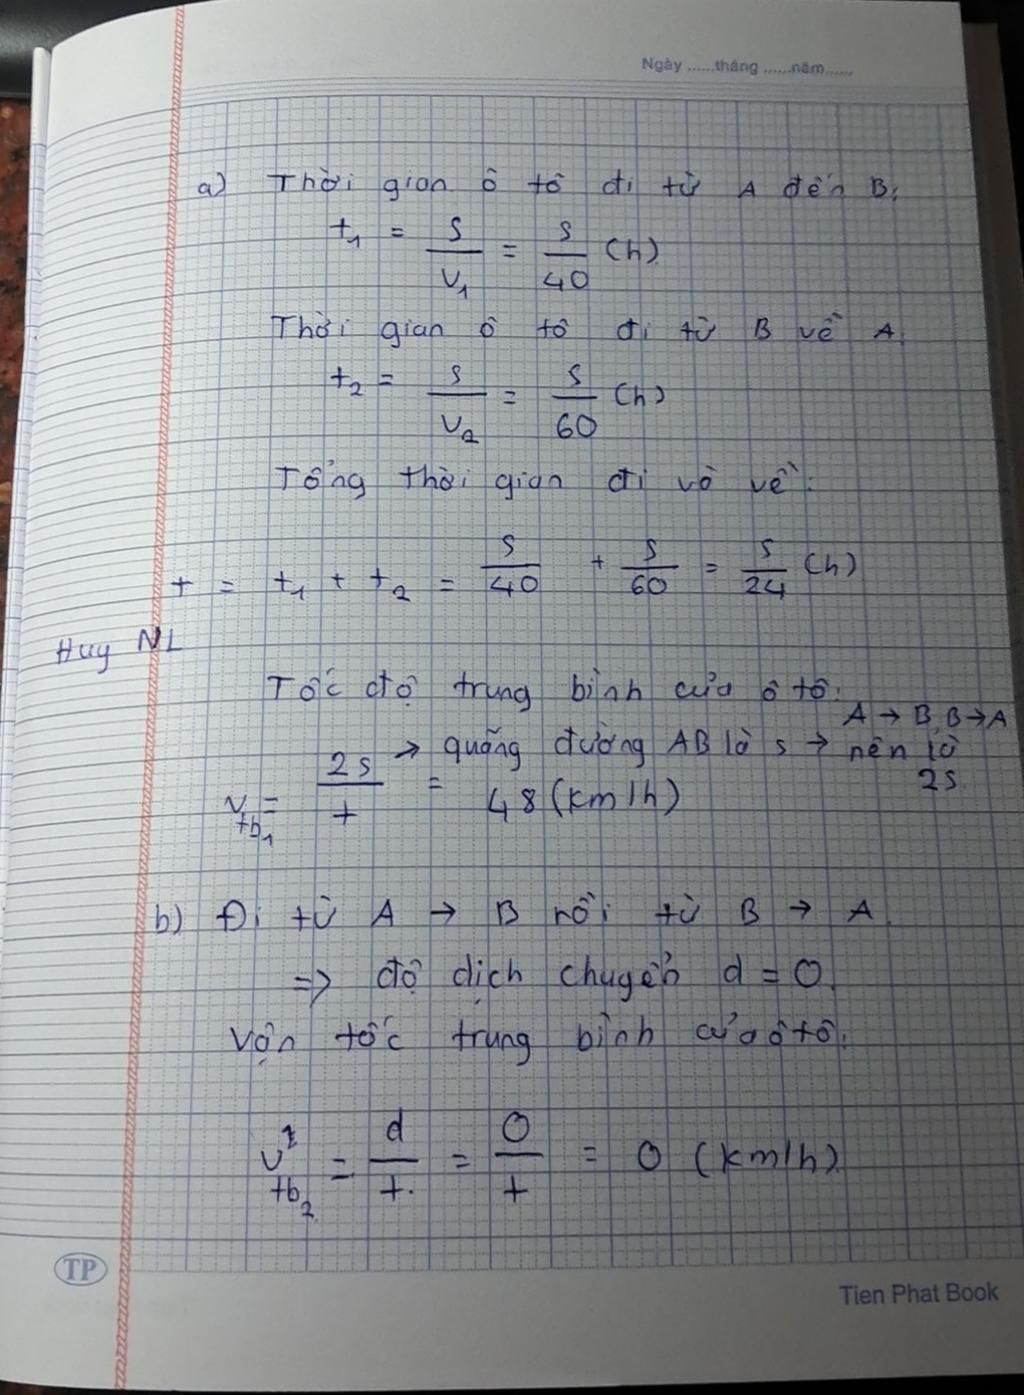 Ngày ......tháng ......năm......
a) Thời gian ô tô đi từ A đến B:
t₁ = s/v₁ = s/40 (h)
Thời gian ô tô đi từ B về A:
t₂ = s/v₂ = s/60 (h)
Tổng thời gian đi và về:
t = t₁ + t₂ = s/40 + s/60 = s/24 (h)
Huy NL
Tốc độ trung bình của ô tô:
A → B, B → A
→ quãng đường AB là s → nên là
2s
v_tb₁ = 2s/t = 48 (km/h)
b) Đi từ A → B rồi từ B → A.
=> độ dịch chuyển d = 0.
Vận tốc trung bình của ô tô:
v_tb₂ = d/t = 0/t = 0 (km/h)
TP
Tien Phat Book